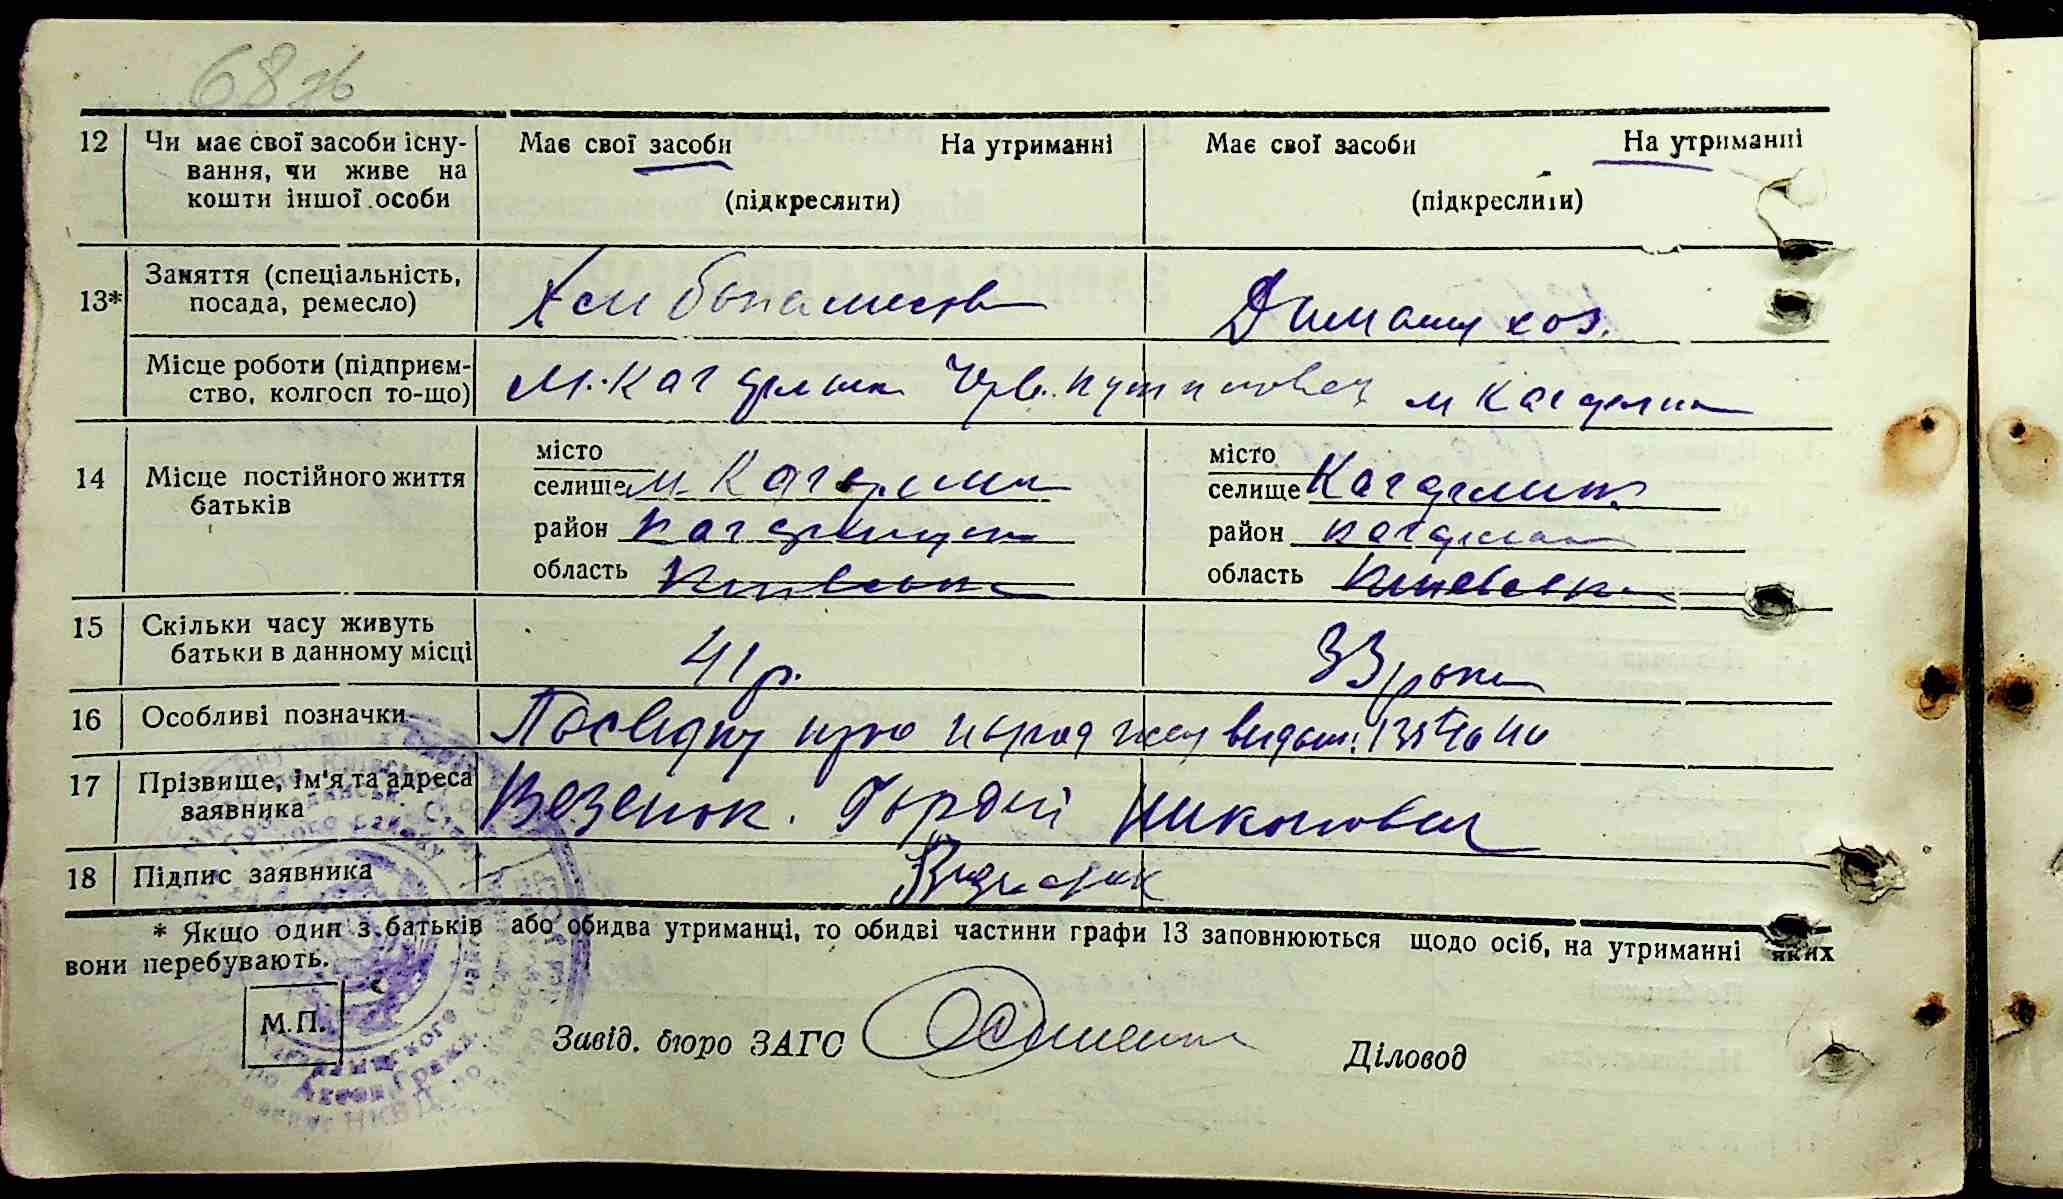 68 зв
12 Чи має свої засоби існу- Має свої засоби На утриманні Має свої засоби На утриманні
вання, чи живе на
кошти іншої особи (підкреслити) (підкреслити)
Заняття (спеціальність,
13* посада, ремесло) Домашн хоз.
Місце роботи (підприєм-
ство, колгосп то-що) м. Кагарлик Черв. путиловец м Кагарлик
місто місто
14 Місце постійного життя селище м. Кагарлик селище Кагарлик
батьків район Кагарлицьк район Кагарлик
область Київська область Киевська
15 Скільки часу живуть
батьки в данному місці 41 р. 33 роки
16 Особливі позначки Посвідку про народж видан:
17 Прізвище, ім'я та адреса
заявника Везенок. Гордій Никонович
18 Підпис заявника
* Якщо один з батьків або обидва утриманці, то обидві частини графи 13 заповнюються щодо осіб, на утриманні яких
вони перебувають.
М.П.
Завід. бюро ЗАГС
Діловод